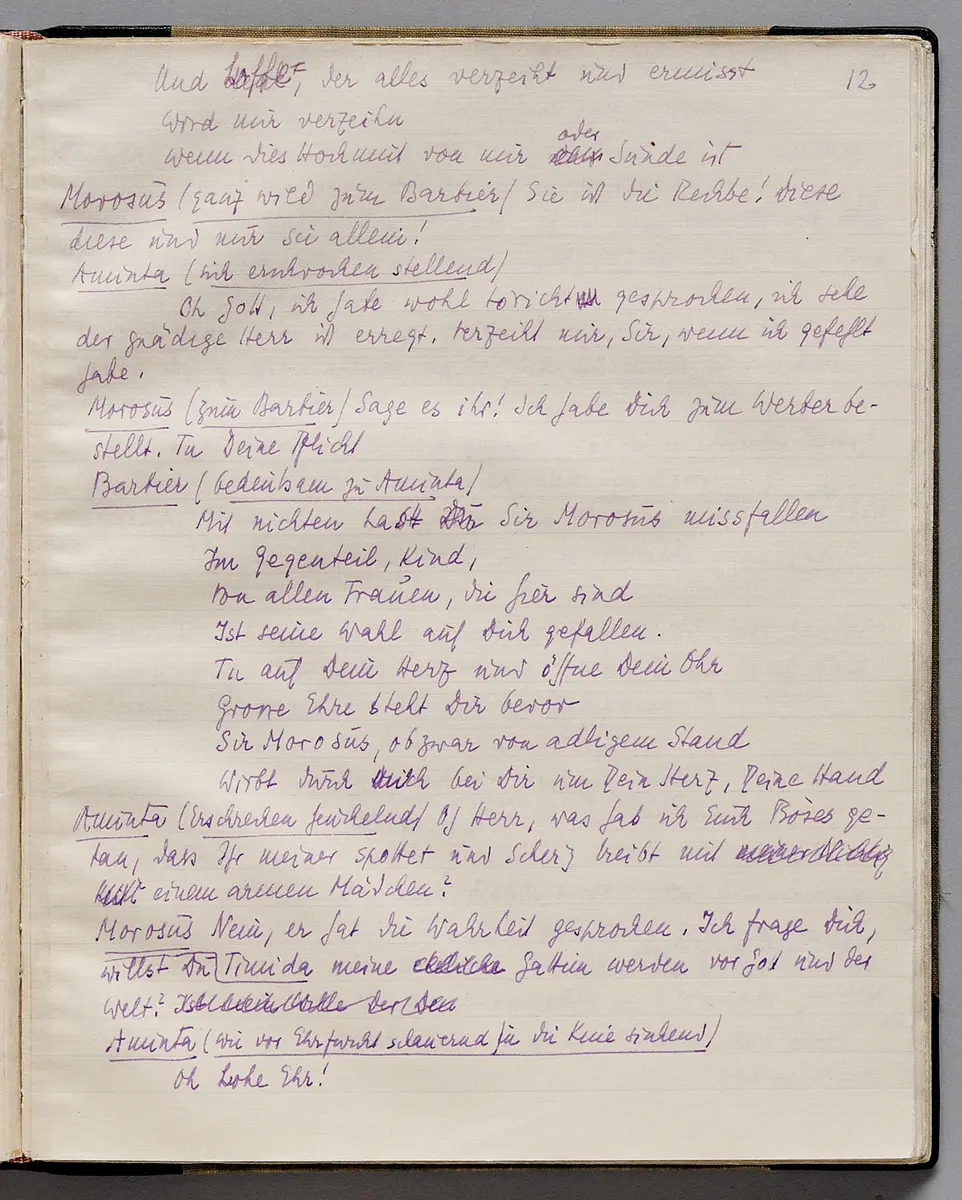 Und hoffe, der alles verzeiht und ermisst
12
Wird mir verzeihn
oder
Wenn dies Hochmut von mir Sünde ist
Morosus (ganz wild zum Barbier) Sie ist die Rechte! Diese
diese und nur sie allein!
Aminta (sich erschrocken stellend)
Oh Gott, ich habe wohl töricht gesprochen, ich sehe
der gnädige Herr ist erregt. Verzeiht mir, Sir, wenn ich gefehlt
habe.
Morosus (zum Barbier) Sage es ihr! Ich habe Dich zum Werber be-
stellt. Tu Deine Pflicht
Barbier (bedeutsam zu Aminta)
Mit nichten hast Du Sir Morosus missfallen
Im Gegenteil, Kind,
Von allen Frauen, die hier sind
Ist seine Wahl auf Dich gefallen.
Tu auf Dein Herz und öffne Dein Ohr
Grosse Ehre steht Dir bevor
Sir Morosus, obzwar von adligem Stand
Wirbt durch mich bei Dir um Dein Herz, Deine Hand
Aminta (Erschrecken heuchelnd) Oh Herr, was hab ich Euch Böses ge-
tan, dass Ihr meiner spottet und Scherz treibt mit
einem armen Mädchen?
Morosus Nein, er hat die Wahrheit gesprochen. Ich frage Dich,
willst Du Timida meine eheliche Gattin werden vor Got und der
Welt?
Aminta (wie vor Ehrfurcht schauernd in die Knie sinkend)
Oh hohe Ehr!